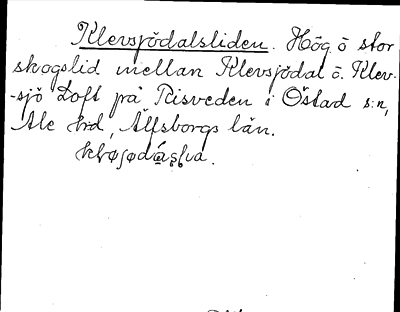 Klevsjödalsliden. Hög o stor
skogslid mellan Klevsjödal o. Klev-
-sjö Loft på Risveden i Östad s:n,
Ale hrd, Älfsborgs län.